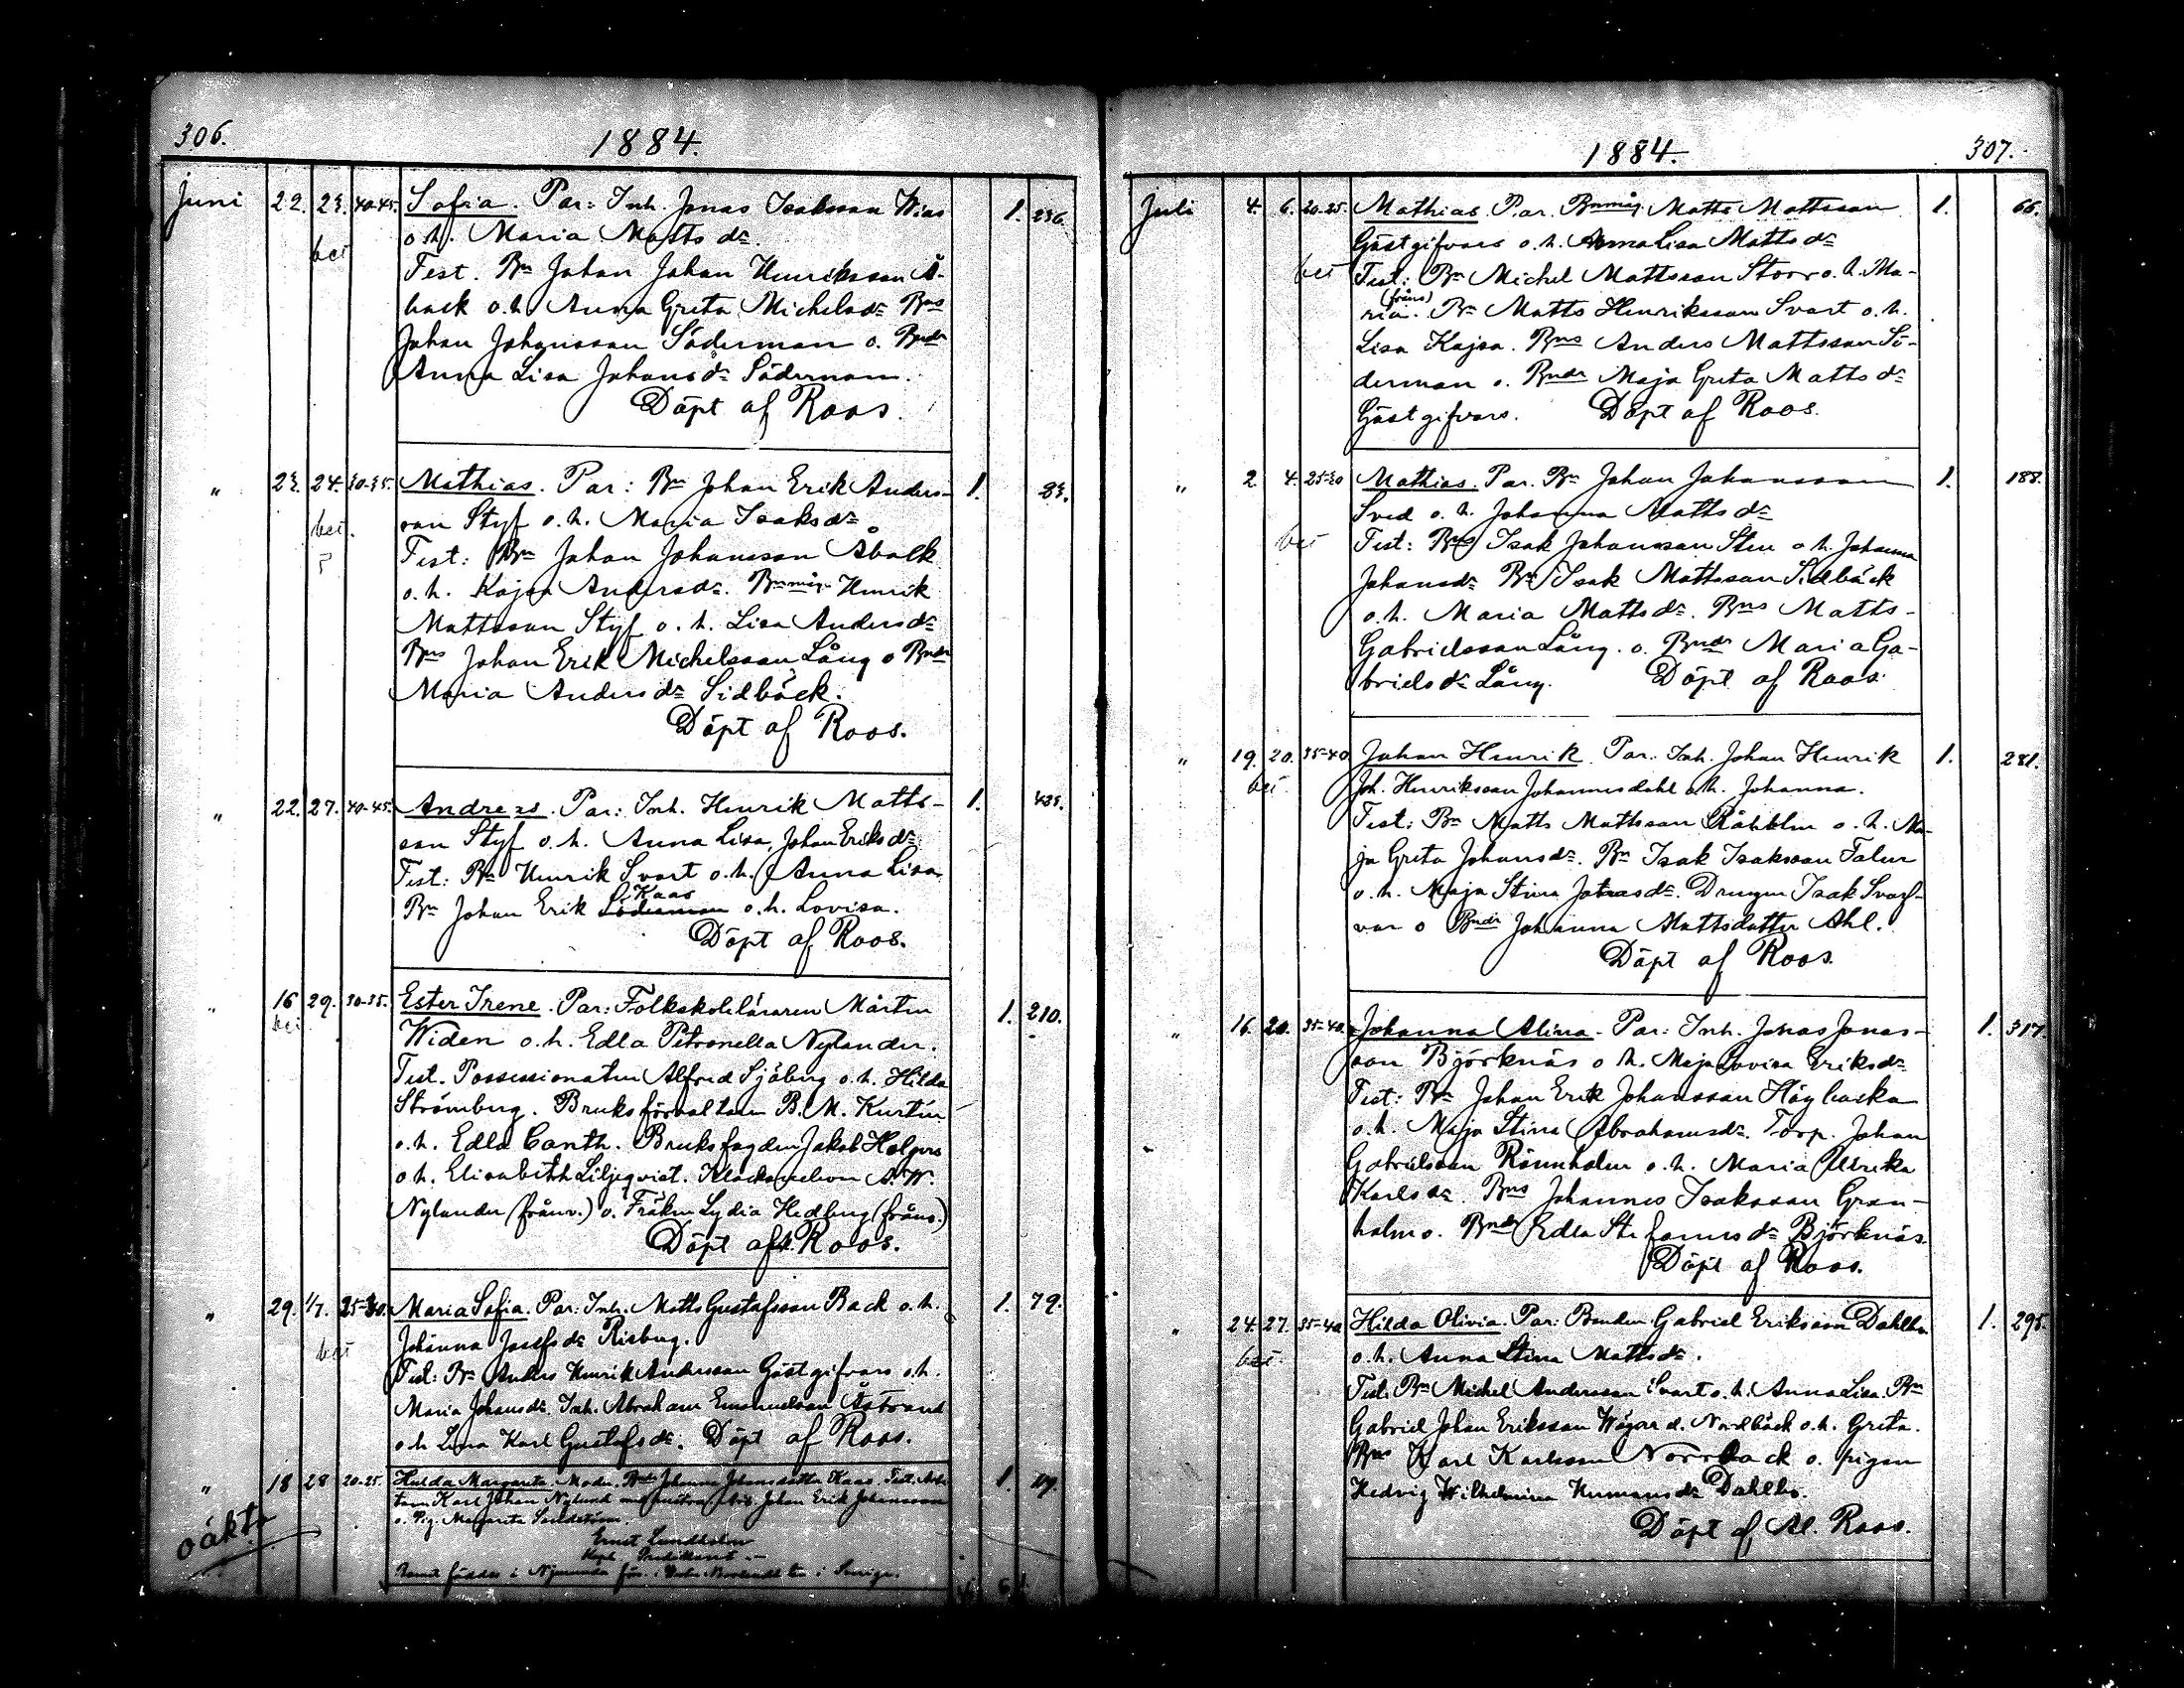 306.
1884.
Juni 22. 23. 40-45. Sofia. Par: Inh. Jonas Isaksson Wias 1. 236.
o.h. Maria Matts dr.
bei
Test. Bn Johan Johan Henriksson Å-
back o.h. Anna Greta Michelsdr Bns
Johan Johansson Söderman o. Bndr
Anna Lisa Johans dr Söderman.
Döpt af Roos.
" 23. 24. 30-35. Mathias. Par: Bn Johan Erik Anders- 1. 83.
son Styf o.h. Maria Isaksdr
bei.
Test: Bn Johan Johansson Åback
o.h. Kajsa Andersdr. Bnmåg Henrik
Mattsson Styf o.h. Lisa Andersdr
Bns Johan Erik Michelsson Lång o Bndr
Maria Anders dr Sidbäck.
Döpt af Roos.
" 22. 27. 40-45. Andreas. Par: Inh. Henrik Matts- 1.
son Styf o.h. Anna Lisa, Johan Eriksdr
Test: Bn Henrik Svart o.h. Anna Lisa
Kaas
Bn Johan Erik Söderman o.h. Lovisa.
Döpt af Roos.
" 16 29. 30-35. Ester Irene. Par: Folkskoleläraren Mårten 1. 210.
bei
Widen o.h. Edla Petronella Nylander.
Test. Possessionaten Alfred Sjöberg o.h. Hilda
Strömberg. Bruksförvaltaren B. M. Kurtén
o.h. Edla Canth. Bruksfogden Jakob Holgers
o.h. Elisabeth Liljeqvist. Klockaredon A. W.
Nylander (frånv.) o. Fröken Lydia Hedberg (frånv.)
Döpt af A. Roos.
" 29. 1/7. 25-30. Maria Sofia. Par: Inh. Matts Gustafsson Back o.h. 1. 79.
Johanna Josefs dr Risberg.
bei
Test: Bn Anders Henrik Andersson Gästgifvars o.h.
Maria Johansdr. Inh. Abraham Emanuelsson Åstrand
o.h. Lina Karl Gustafsdr. Döpt af Roos.
" 18 28 20-25. Hulda Margareta. Moder. Bndr Johanna Johansdotter Kaas. Test. Arbe- 1.
taren Karl Johan Nylund med hustru Johan Erik Johansson
o. Pig. Margareta Sandström.
oäkta
Ernst Lundholm
Kapl. Predikant
Barnet föddes i Njurunda förs. i Wester Norrlands län i Sverige.
1884.
307.
Juli 4. 6. 20-25. Mathias. Par. Bnmåg Matts Mattsson 1. 66.
Gästgifvars o.h. Anna Lisa Matts dr
bei
Test: Bn Michel Mattsson Storr o.h. Ma-
(frånv)
ria. Bn Matts Henriksson Svart o.h.
Lisa Kajsa. Bns Anders Mattsson Sö-
derman o. Bndr Maja Greta Matts dr
Gästgifvars. Döpt af Roos.
" 2. 4. 25-30 Mathias. Par. Bn Johan Johansson 1. 188.
Sved o.h. Johanna Matts dr
bei
Test: Bns Isak Johansson Sten o.h. Johanna
Johansdr Bn Isak Mattsson Sidbäck
o.h. Maria Matts dr. Bns Matts
Gabrielsson Lång. o. Bndr Maria Ga-
briels dr Lång. Döpt af Roos.
" 19. 20. 35-40 Johan Henrik. Par. Inh. Johan Henrik 1. 281.
bei
Joh. Henriksson Johannesdahl o.h. Johanna.
Test: Bn Matts Mattsson o.h. Ma-
ja Greta Johansdr. Bn Isak Isaksson Falin
o.h. Maja Stina Jonasdr. Drengen Isak Svarf-
var o Bndr Johanna Mattsdotter Ahl.
Döpt af Roos.
" 16. 20. 35-40. Johanna Alina. Par: Inh. Jonas Jonas- 1. 317.
son Björknäs o h. Maja Lovisa Eriksdr
Test: Bn Johan Erik Johansson Högbacka
o.h. Maja Stina Abrahamsdr. Torp. Johan
Gabrielsson Rönnholm o.h. Maria Ulrika
Karlsdr. Bns Johannes Isaksson Gran-
holm o. Bndr Edla Stefanusdr Björknäs.
Döpt af Roos.
" 24. 27. 35-40 Hilda Olivia. Par: Bonden Gabriel Eriksson Dahlbo 1. 295.
bei.
o.h. Anna Stina Mattsdr.
Test: Bn Michel Andersson Svart o.h. Anna Lisa. Bn
Gabriel Johan Eriksson Wägar d. Nordbäck o.h. Greta.
Bns Karl Karlsson Norrback o. pigan
Hedvig Wilhelmina Hermans dr Dahlbo.
Döpt af Al. Roos.